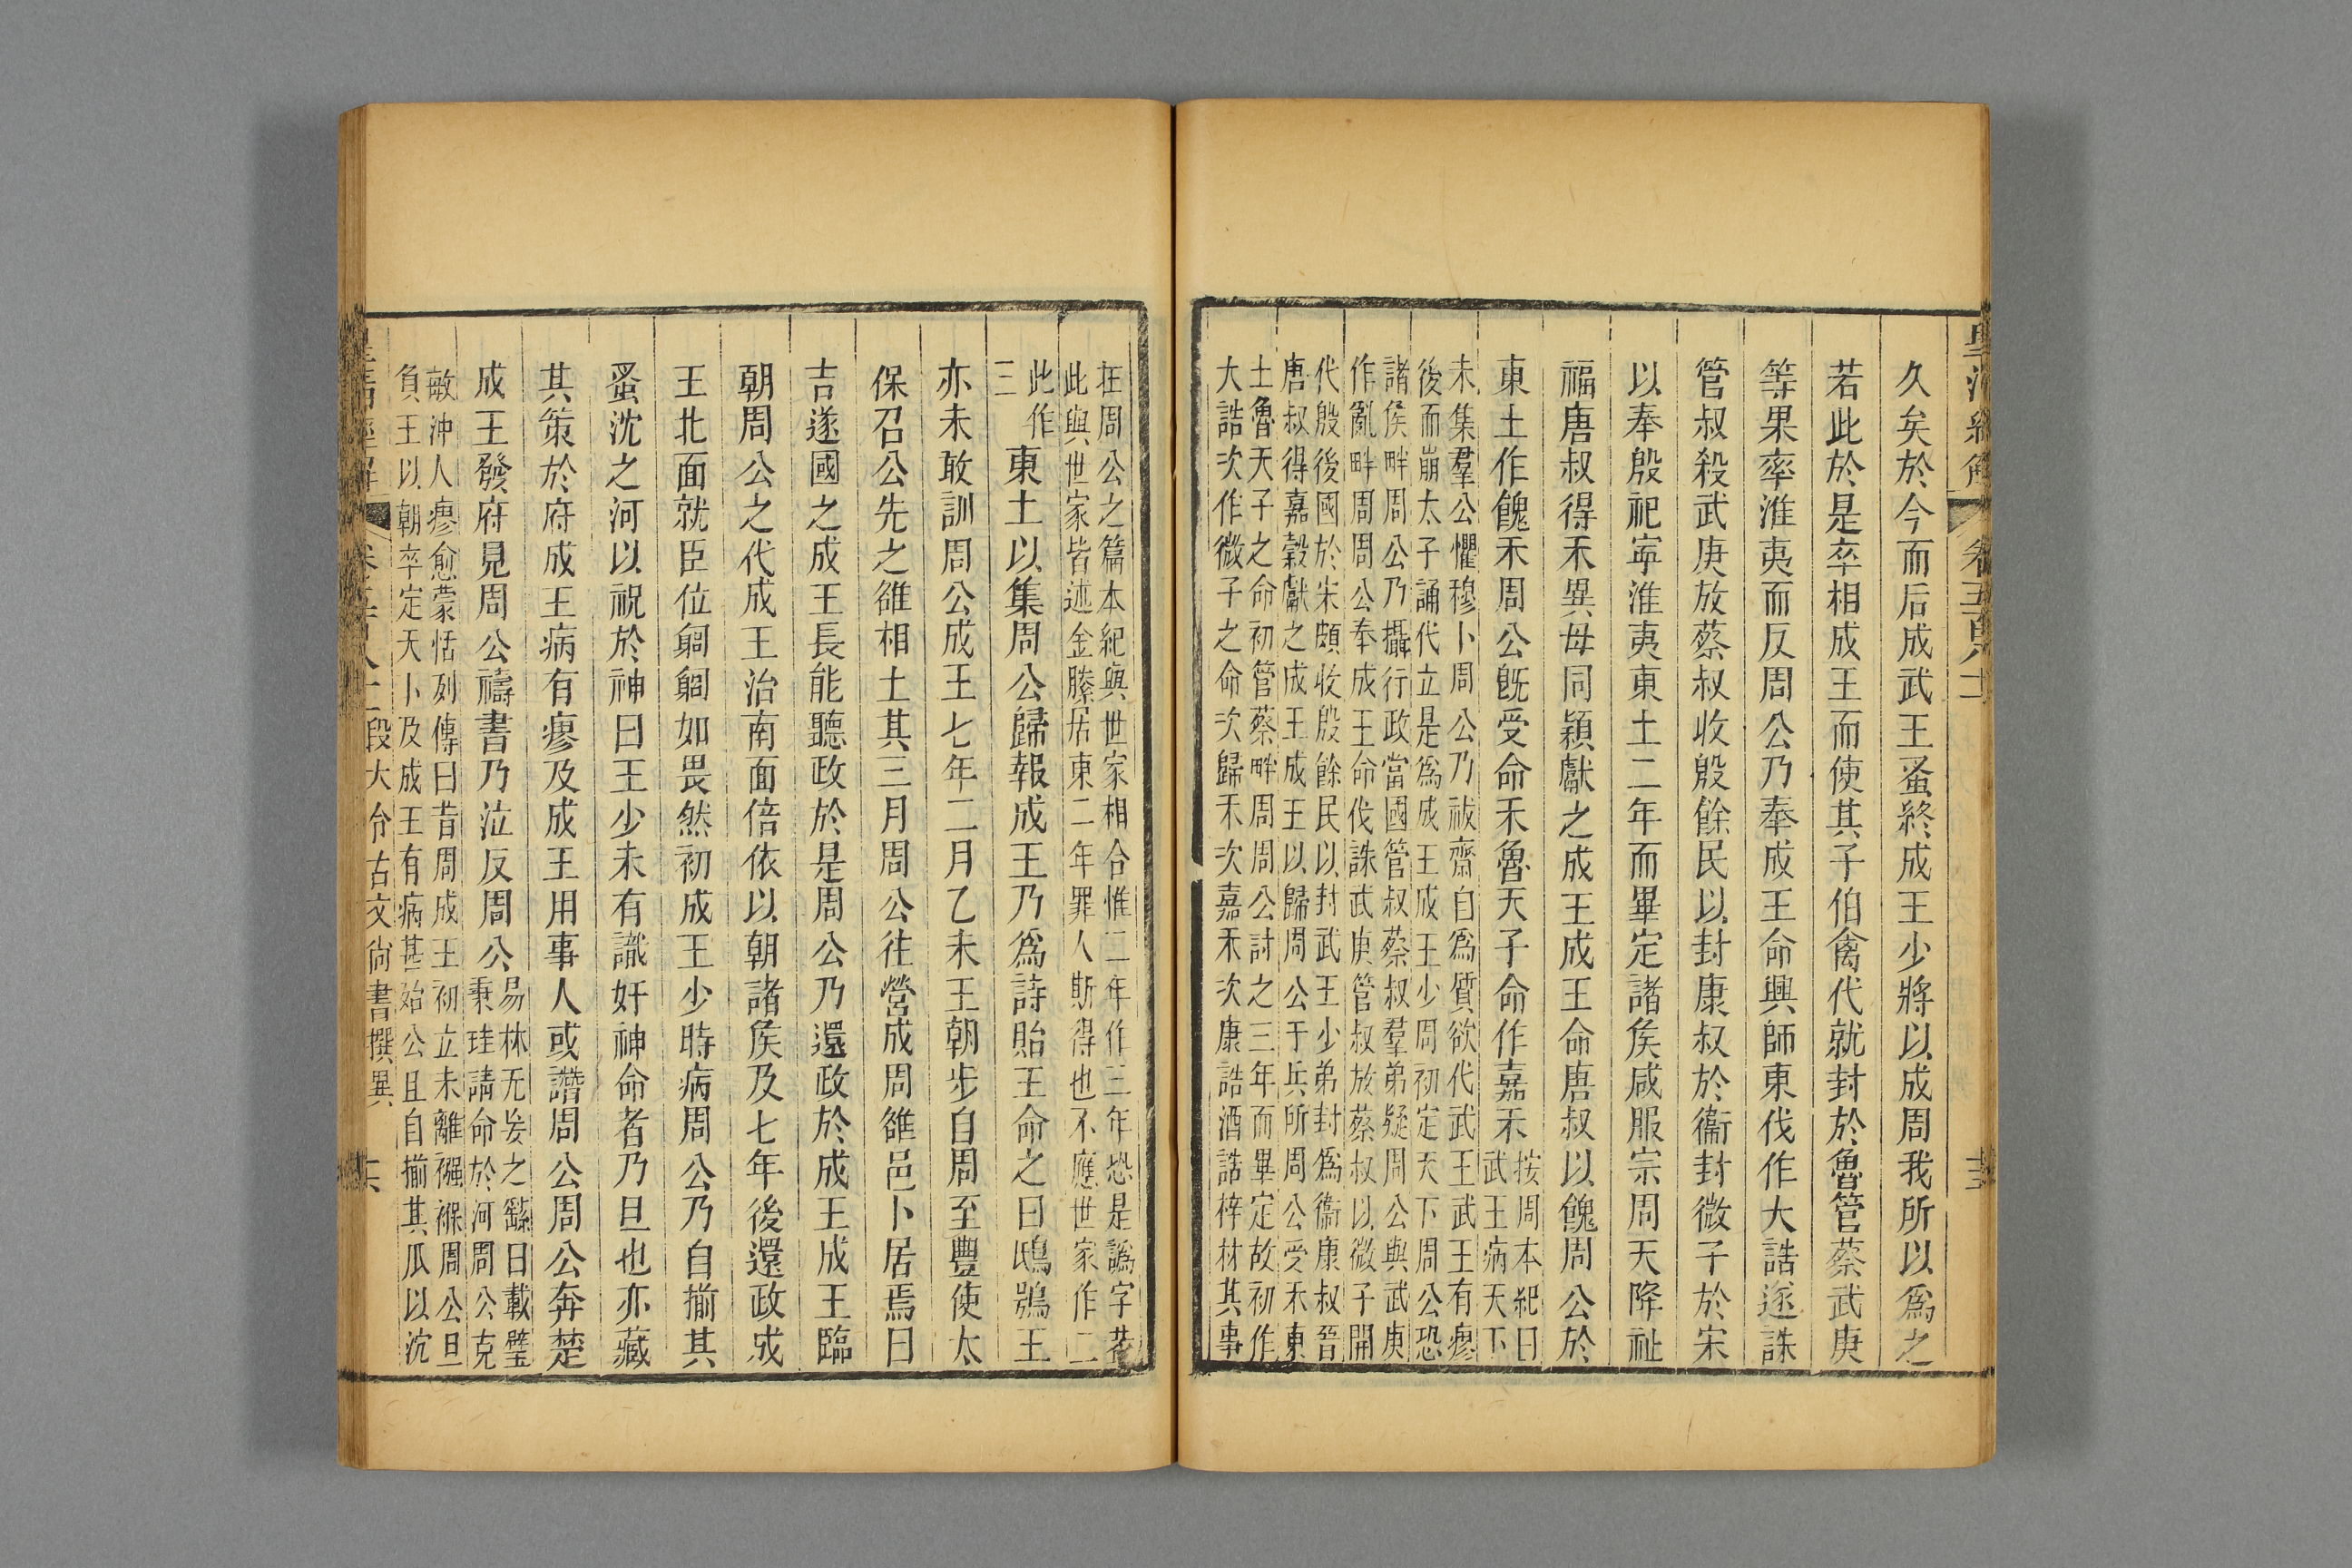 久矣於今而后成武王蚤終成王少將以成周我所以爲之
若此於是卒相成王而使其子伯禽代就封於魯管蔡武庚
等果率淮夷而反周公乃奉成王命興師東伐作大誥遂誅
管叔殺武庚放蔡叔收殷餘民以封康叔於衞封微子於宋
以奉殷祀寧淮夷東土二年而畢定諸矦咸服宗周天降祉
福唐叔得禾異母同穎獻之成王成王命唐叔以餽周公於
東土作餽禾周公旣受命禾魯天子命作嘉禾
按周本紀曰
武王病天下
未集羣公懼穆卜周公乃祓齋自爲質欲代武王武王有瘳
後而崩太子誦代立是爲成王成王少周初定天下周公恐
諸矦畔周公乃攝行政當國管叔蔡叔羣弟疑周公與武庚
作亂畔周周公奉成王命伐誅武庚管叔放蔡叔以微子開
代殷後國於宋頗收殷餘民以封武王少弟封爲衞康叔晉
唐叔得嘉穀獻之成王成王以歸周公于兵所周公受禾東
土魯天子之命初管蔡畔周周公討之三年而畢定故初作
大誥次作微子之命次歸禾次嘉禾次康誥酒誥梓材其事
在周公之篇本紀與世家相合惟二年作三年恐是譌字若
此與世家皆述金縢居東二年罪人斯得也不應世家作二
此作
三
東土以集周公歸報成王乃爲詩貽王命之曰鴟鴞王
亦未敢訓周公成王七年二月乙未王朝步自周至豐使太
保召公先之雒相土其三月周公往營成周雒邑卜居焉曰
吉遂國之成王長能聽政於是周公乃還政於成王成王臨
朝周公之代成王治南面倍依以朝諸矦及七年後還政成
王北面就臣位匔匔如畏然初成王少時病周公乃自揃其
蚤沈之河以祝於神曰王少未有識奸神命者乃旦也亦藏
其策於府成王病有瘳及成王用事人或譖周公周公奔楚
成王發府見周公禱書乃泣反周公
易林无妄之繇曰載璧
秉珪請命於河周公克
敏沖人瘳愈蒙恬列傳曰昔周成王初立未離襁褓周公旦
負王以朝卒定天下及成王有病甚殆公旦自揃其爪以沈
段大令古文尙書撰異